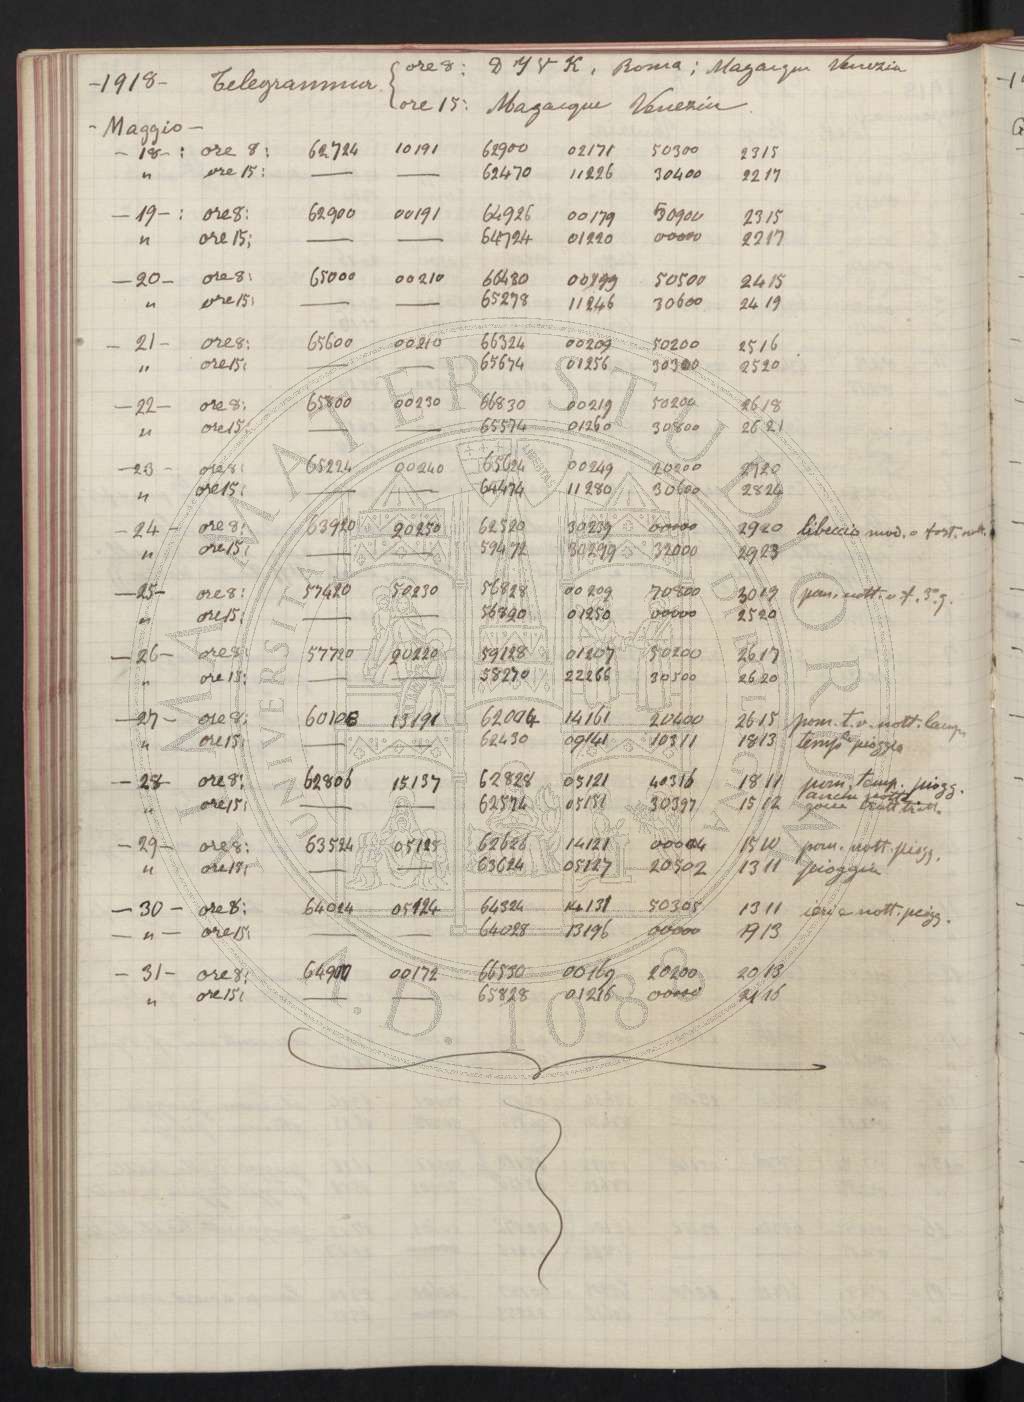 -1918- Telegramma { ore 8: D Y V K, Roma; Magacque Venezia
ore 15: Magacque Venezia
- Maggio -
- 18 - : ore 8: 62724 10191 62900 02171 50300 2315
" ore 15: — — 62470 11226 30400 2217
- 19 - : ore 8: 62900 00191 64926 00179 30900 2315
" ore 15; — — 64724 01220 00000 2217
- 20 - ore 8: 65000 00210 66480 00199 50500 2415
" ore 15: — — 65278 11246 30600 2419
- 21 - ore 8: 65600 00210 66324 00209 50200 2516
" ore 15: — — 65674 01256 30300 2520
- 22 - ore 8: 65800 00230 66830 00219 50200 2618
" ore 15: — — 65574 01260 30800 2621
- 23 - ore 8: 65224 00240 65624 00249 20200 2720
" ore 15: — — 64474 11280 30600 2824
- 24 - ore 8: 63920 20250 62520 30239 00000 2920 libeccio mod. o fort. nott.
" ore 15: — — 59472 30299 32000 2923
- 25 - ore 8: 57420 50230 56828 00209 70800 3019
" ore 15: — — 56890 01250 00000 2520
- 26 - ore 8: 57720 20220 59128 01207 50200 2617
" ore 15: — — 58270 22266 30500 2620
- 27 - ore 8: 60108 13191 62004 14161 20400 2615 pom. t. v. nott. lamp.
" ore 15: — — 62430 09141 10311 1813 pioggia
- 28 - ore 8: 62806 15137 62828 05121 40316 1811 pom. temp. piogg.
" ore 15: — — 62574 05151 30397 1512
- 29 - ore 8: 63524 05125 62626 14121 00004 1510 pom. nott. piogg.
" ore 15; — — 63624 05127 20502 1311 pioggia
- 30 - ore 8: 64024 05124 64324 14131 50305 1311 ieri e nott. piogg.
- " - ore 15; — — 64028 13196 00000 1913
- 31 - ore 8: 64900 00172 66530 00169 20200 2013
" ore 15: — — 65828 01216 00000 2116
ALMA MATER STUDIORUM
A.D. 1088
UNIVERSITÀ DI BOLOGNA